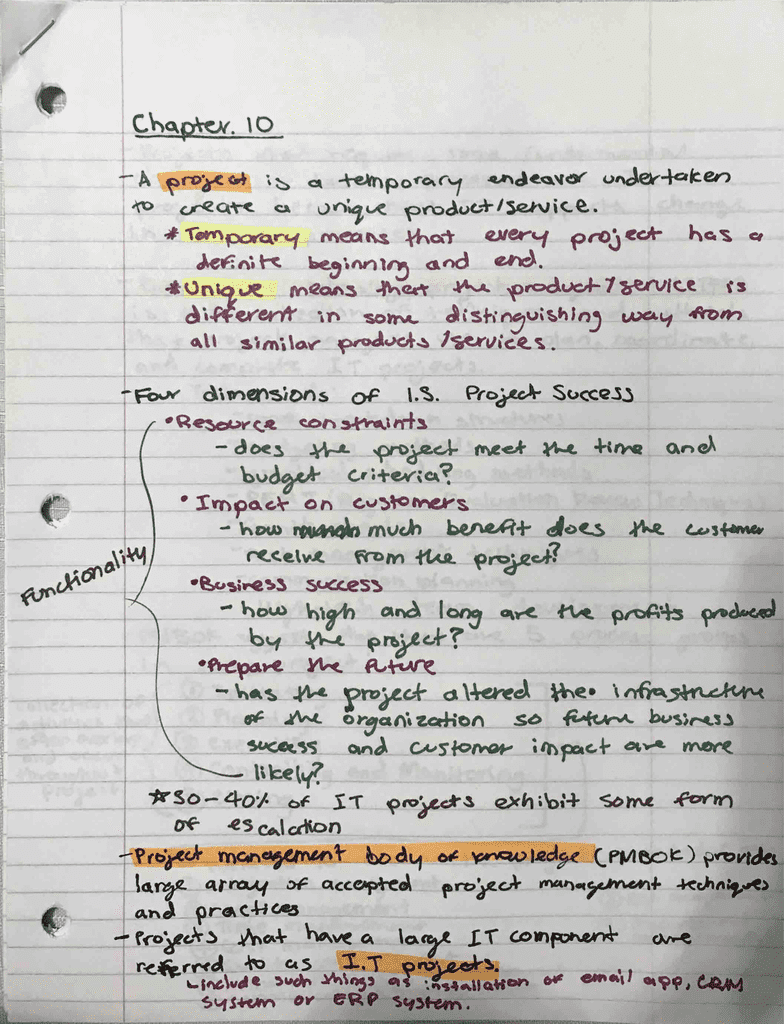 Chapter. 10
- A project is a temporary endeavor undertaken
to create a unique product/service.
* Temporary means that every project has a
definite beginning and end.
* Unique means that the product/service is
different in some distinguishing way from
all similar products/services.
- Four dimensions of I.S. Project Success
• Resource constraints
- does the project meet the time and
budget criteria?
• Impact on customers
- how much benefit does the customer
receive from the project?
Functionality
• Business success
- how high and long are the profits produced
by the project?
• Prepare the future
- has the project altered the infrastructure
of the organization so future business
success and customer impact are more
likely?
* 30-40% of IT projects exhibit some form
of escalation
- Project management body of knowledge (PMBOK) provides
large array of accepted project management techniques
and practices
- Projects that have a large IT component are
referred to as I.T projects.
include such things as installation of email app, CRM
system or ERP system.